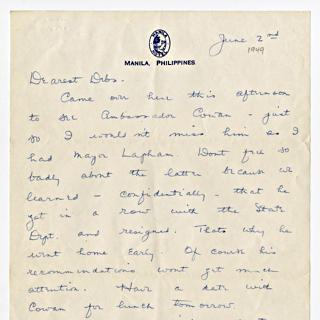 June 2nd
1949
MANILA, PHILIPPINES
Dearest Debs.
Came over here this afternoon
to see Ambassador Cowan - just
so I wouldn't miss him as I
had Major Lapham. Dont feel so
badly about the latter because we
learned - confidentially - that he
got in a row with the State
Dept. and resigned. Thats why he
went home early. Of course his
recommendations wont get much
attention. Have a date with
Cowan for lunch tomorrow.